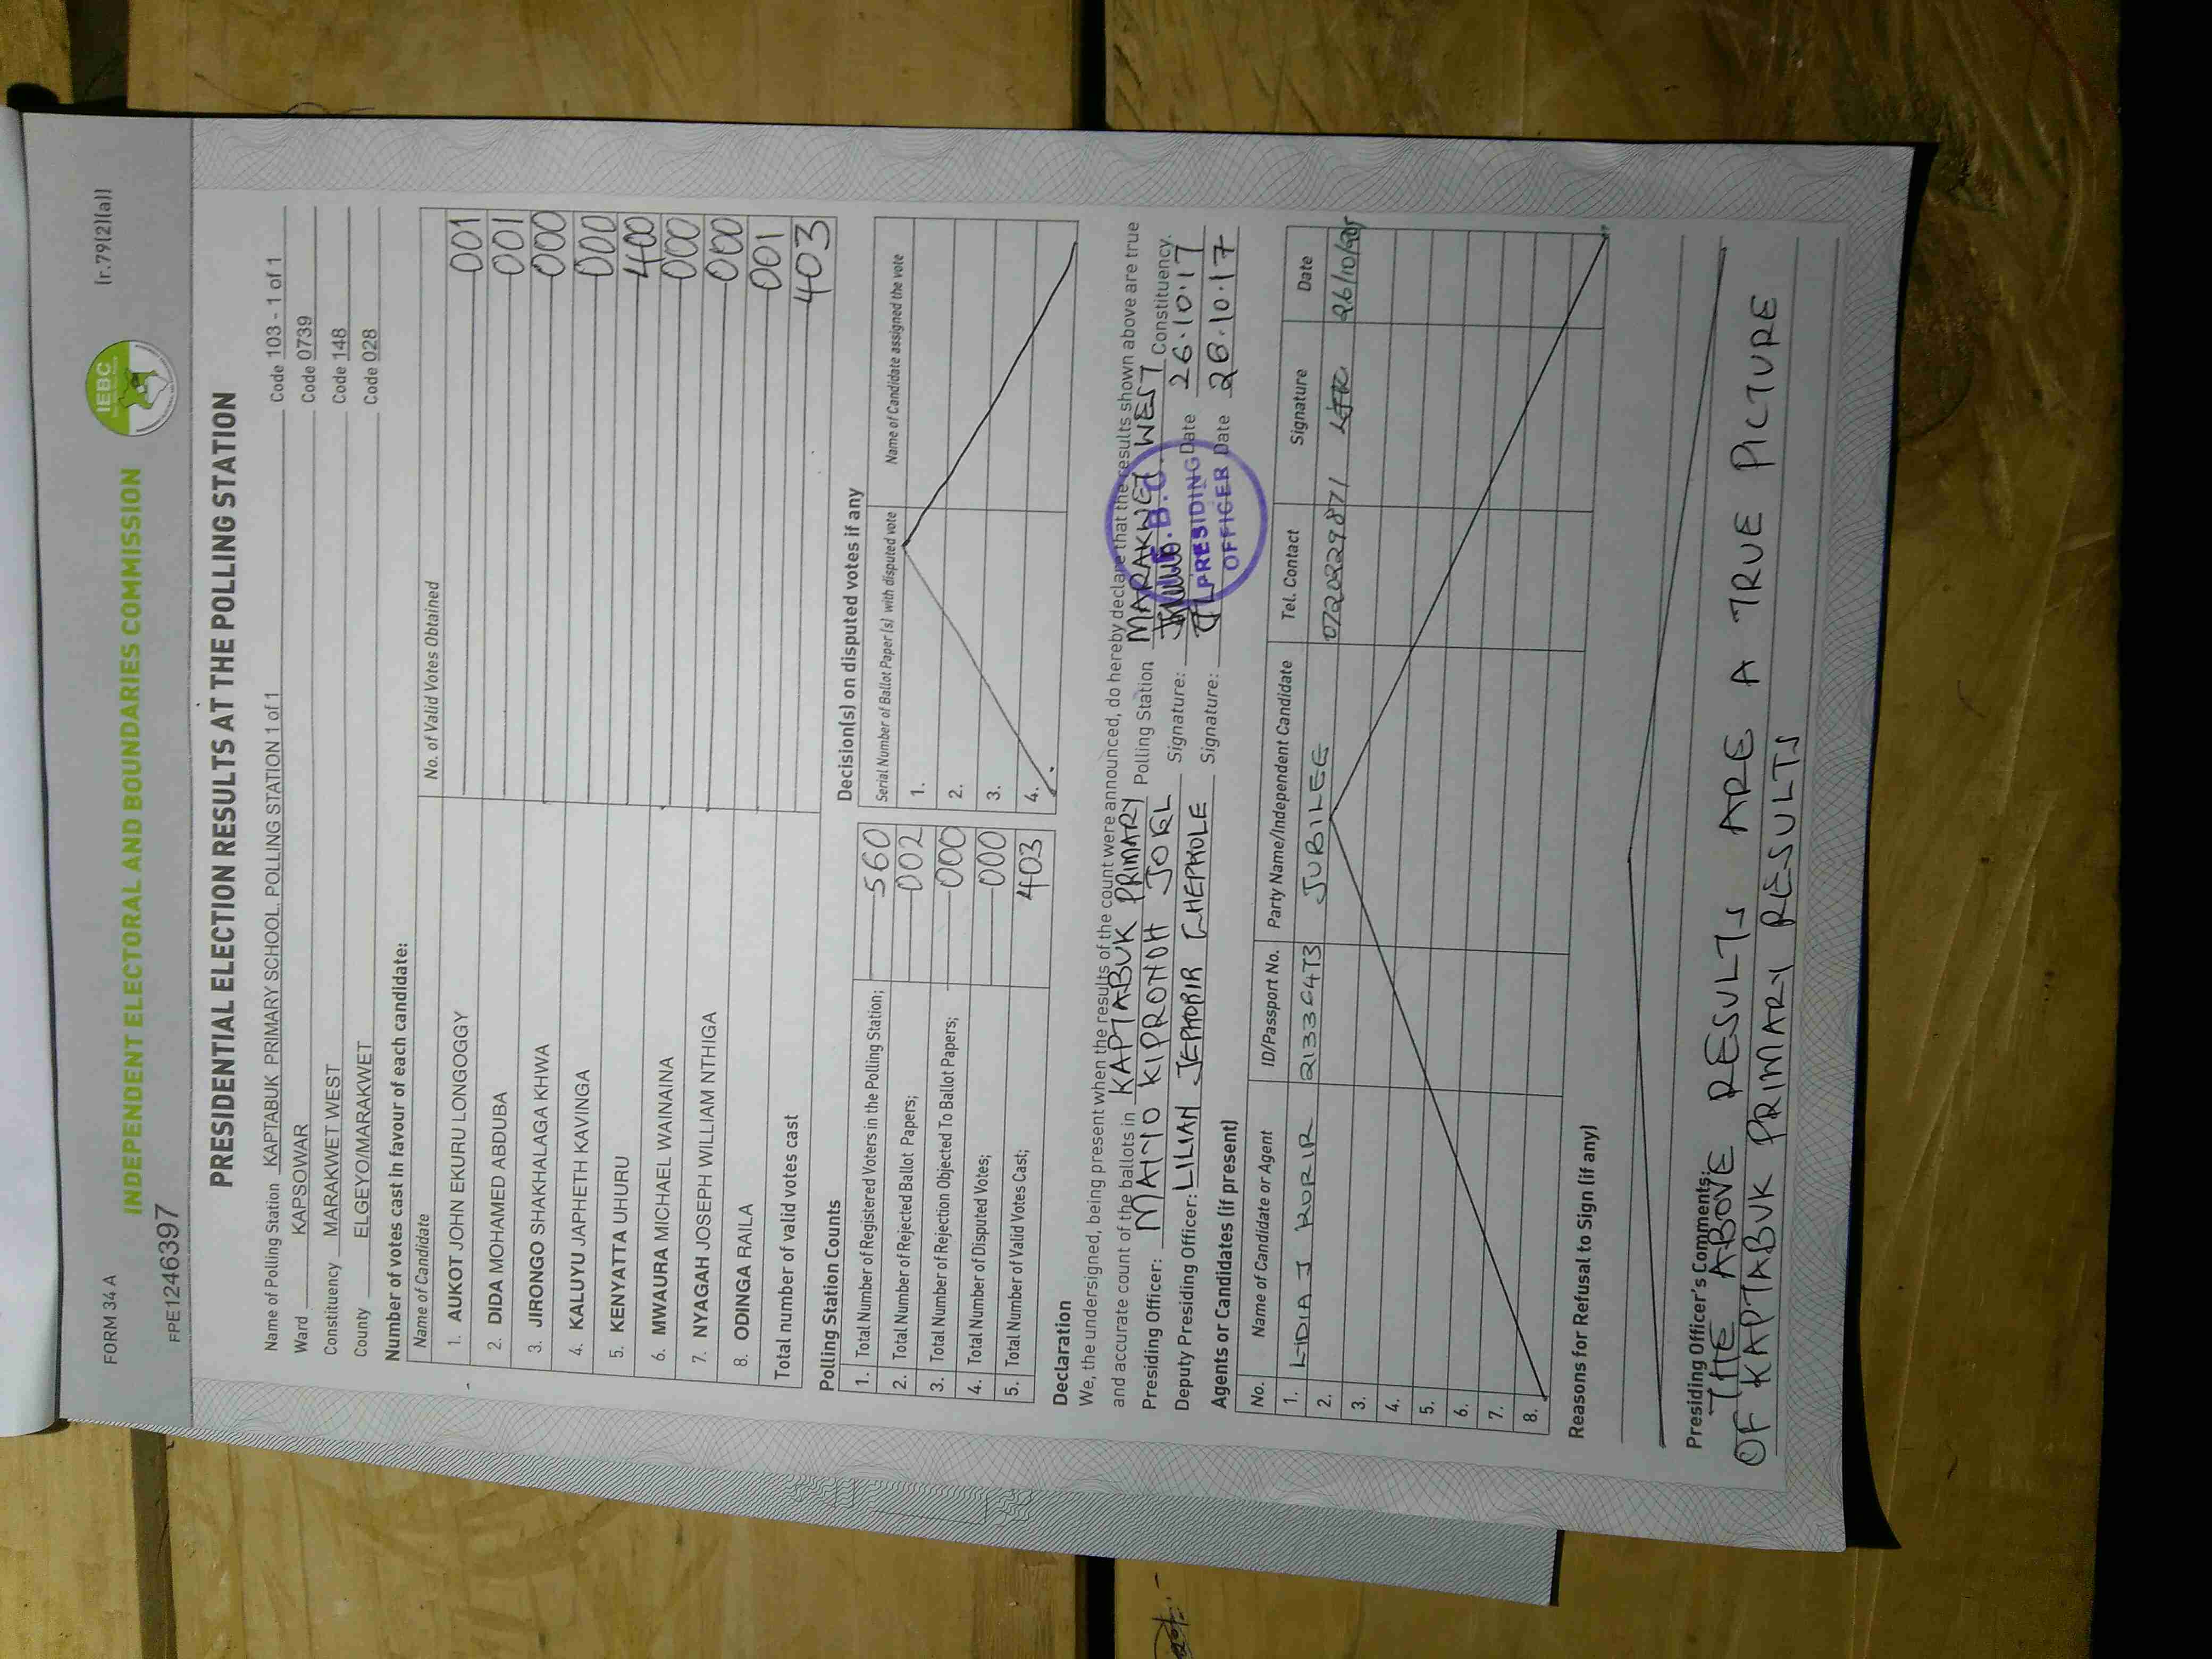 FORM 34 A
[r.79(2)(a)]
FPE1246397
INDEPENDENT ELECTORAL AND BOUNDARIES COMMISSION
IEBC
PRESIDENTIAL ELECTION RESULTS AT THE POLLING STATION
Name of Polling Station KAPTABUK PRIMARY SCHOOL, POLLING STATION 1 of 1 Code 103 - 1 of 1
Ward KAPSOWAR Code 0739
Constituency MARAKWET WEST Code 148
County ELGEYO/MARAKWET Code 028
Number of votes cast in favour of each candidate:
Name of Candidate No. of Valid Votes Obtained
1. AUKOT JOHN EKURU LONGOGGY 001
2. DIDA MOHAMED ABDUBA 001
3. JIRONGO SHAKHALAGA KHWA 000
4. KALUYU JAPHETH KAVINGA 000
5. KENYATTA UHURU 400
6. MWAURA MICHAEL WAINAINA 000
7. NYAGAH JOSEPH WILLIAM NTHIGA 000
8. ODINGA RAILA 001
Total number of valid votes cast 403
Polling Station Counts
1. Total Number of Registered Voters in the Polling Station; 560
2. Total Number of Rejected Ballot Papers; 002
3. Total Number of Rejection Objected To Ballot Papers; 000
4. Total Number of Disputed Votes; 000
5. Total Number of Valid Votes Cast; 403
Decision(s) on disputed votes if any
Serial Number of Ballot Paper(s) with disputed vote Name of Candidate assigned the vote
1.
2.
3.
4.
Declaration
We, the undersigned, being present when the results of the count were announced, do hereby declare that the results shown above are true
and accurate count of the ballots in KAPTABUK PRIMARY Polling Station MARAKWET WEST Constituency.
Presiding Officer: MAIYO KIPRONOH JOEL Signature: Date 26.10.17
Deputy Presiding Officer: LILIAN JEPKORIR CHEPKOLE Signature: Date 26.10.17
PRESIDING
OFFICER
Agents or Candidates (if present)
No. Name of Candidate or Agent ID/Passport No. Party Name/Independent Candidate Tel. Contact Signature Date
1. LIDIA J RORIR JUBILEE 0720829871
2.
3.
4.
5.
6.
7.
8.
Reasons for Refusal to Sign (if any)
Presiding Officer's Comments:
THE ABOVE RESULTS ARE A TRUE PICTURE
OF KAPTABUK PRIMARY RESULTS